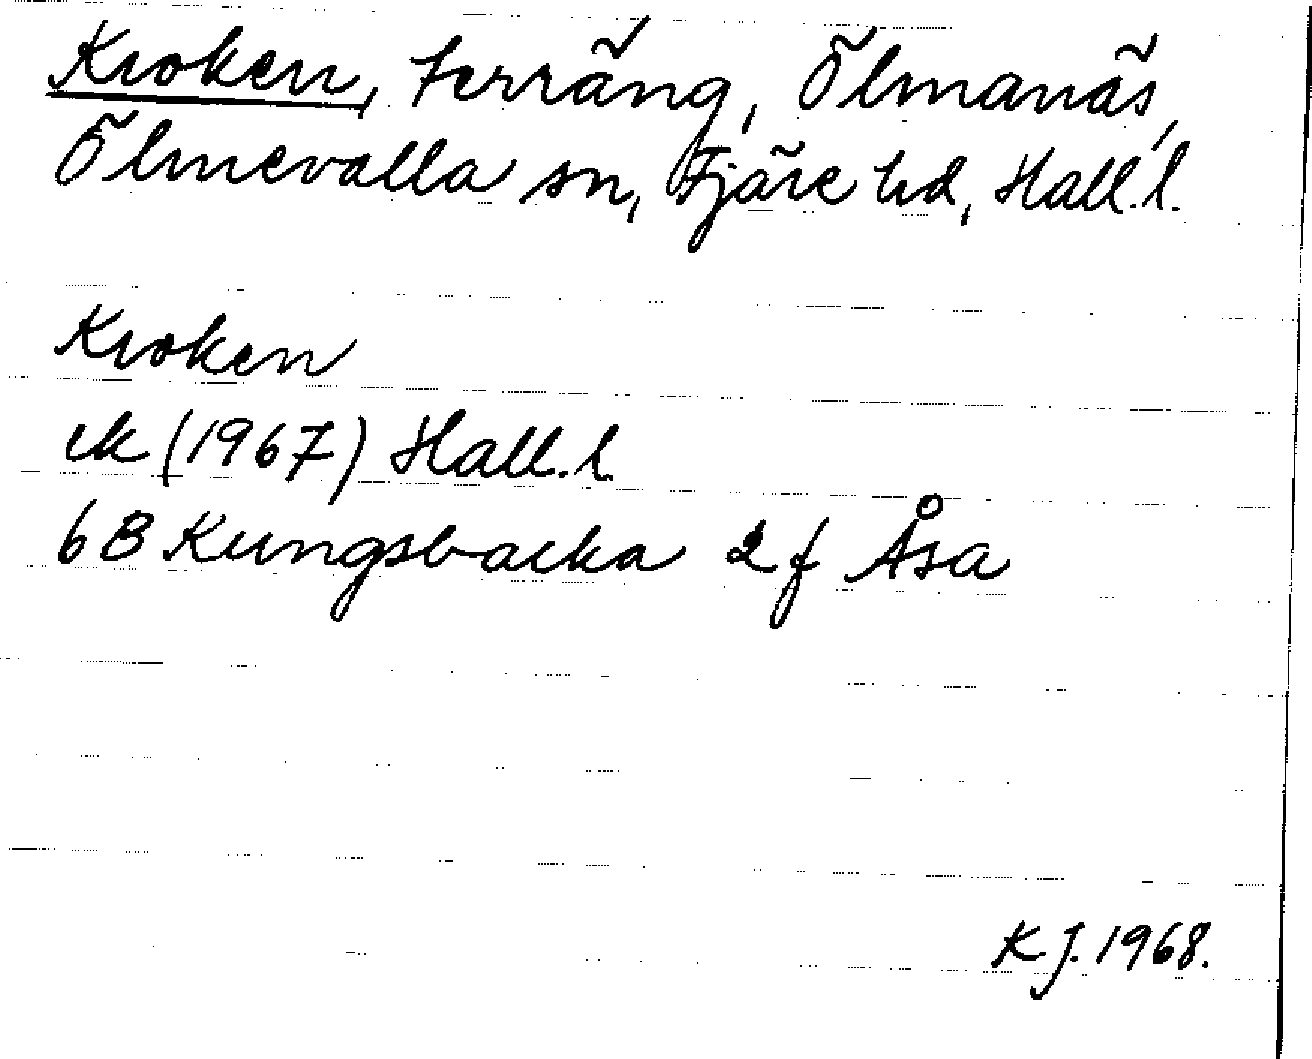 Kroken, terräng, Ölmanäs,
Ölmevalla sn, Fjäre hd, Hall. l.
Kroken
ek (1967) Hall. l.
6B Kungsbacka 2f Åsa
K J. 1968.